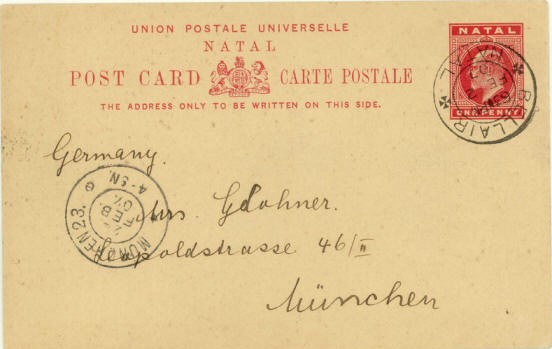 UNION POSTALE UNIVERSELLE
NATAL
POST CARD CARTE POSTALE
THE ADDRESS ONLY TO BE WRITTEN ON THIS SIDE.
NATAL
ONE PENNY
BELLAIR
NATAL
Germany.
Mrs. G Lohner.
Leopoldstrasse 46/II
München
MÜNCHEN 23.
FEB.
07